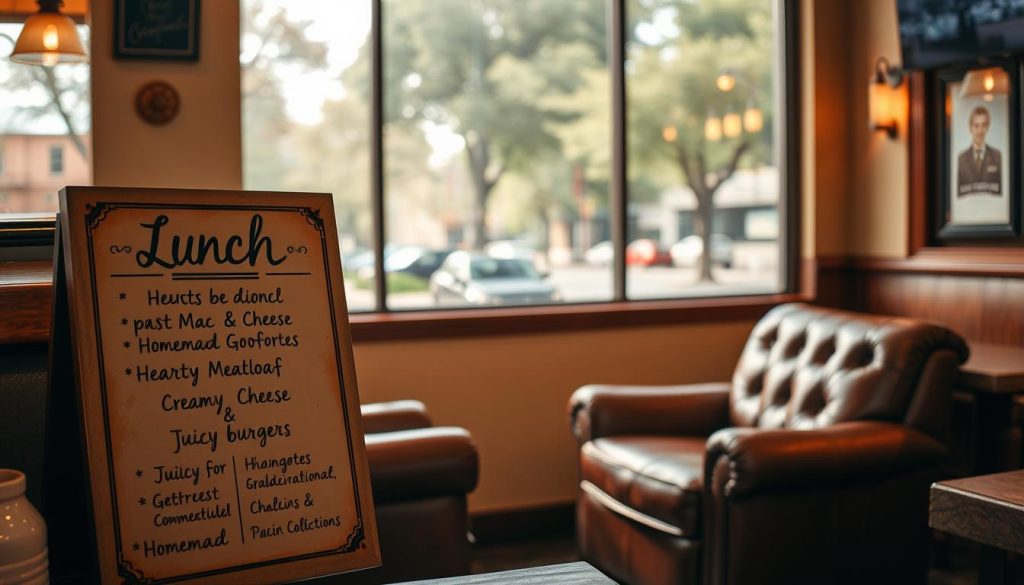 Lunch
* Heuts be dioncl
* past Mac & Cheese
* Homemad Goofortes
* Hearty Meatloaf
Creamy Cheese
&
Juicy burgers
* Juicy for
* Getfrrest
Commentiuled
* Homemad
Hhangotes
Graldairational,
Chaleins &
Pacin Collctions